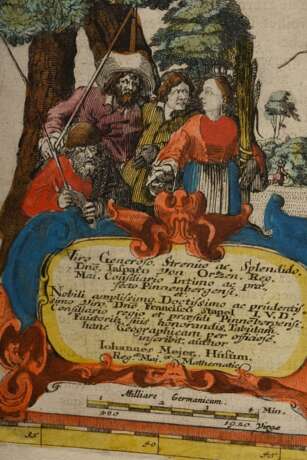 Viro Generoso, Strenuo ac Splendido
Dño. Iaspari von Ortzen. Reg.
Mai. Consiliario Intimo ac præ-
fecto Pinnenbergensi, et
Nobili amplissimo Doctissimo ac prudentis-
simo Viro Dño Francisco Stapel I.V.D.
Consiliario regio et præsidi Pinnebergensi
Fautoribus suis honorandis, Tabulam
hanc Geographicam per officiose
inscribit author
Iohannes Mejer, Husum.
Regæ Mai. Mathematic
Milliare Germanicum.
1 2 3 4 Min.
1920 Virgæ
35 40 45